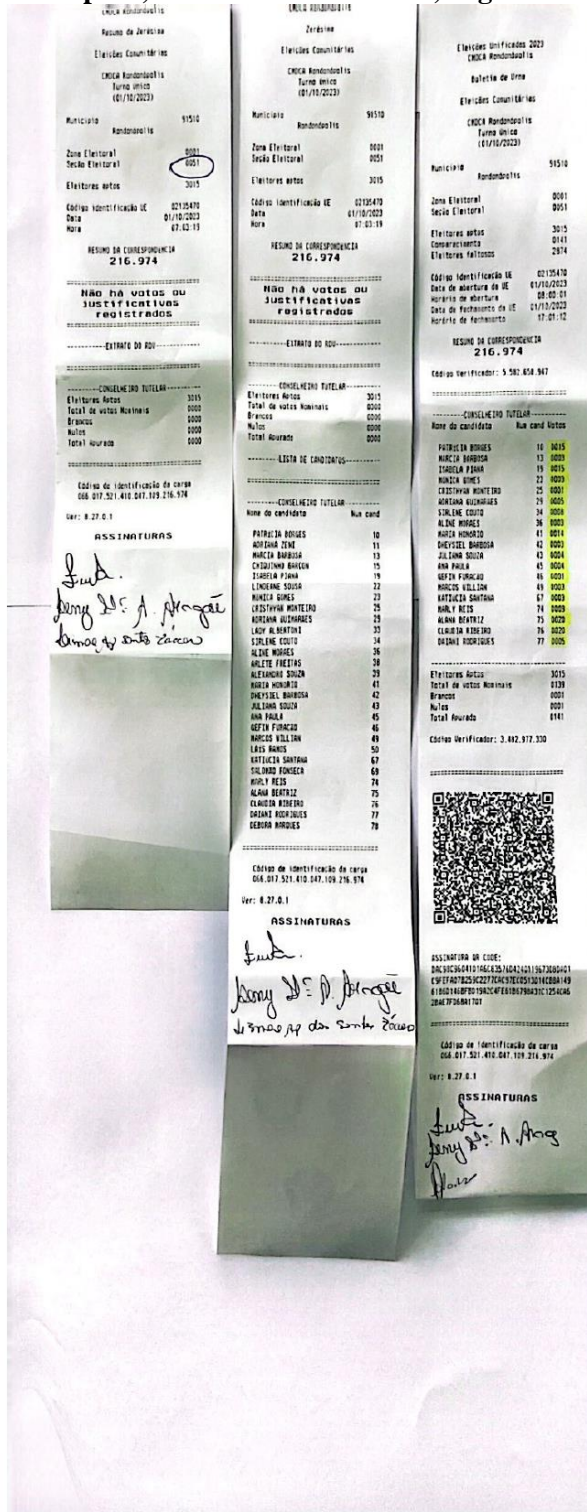 CMDCA Rondonópolis
Resumo da Zerésima
Eleições Comunitárias
CMDCA Rondonópolis
Turno único
(01/10/2023)
Município 91510
Rondonópolis
Zona Eleitoral 0001
Seção Eleitoral 0051
Eleitores aptos 3015
Código identificação UE 02135470
Data 01/10/2023
Hora 07:03:19
RESUMO DA CORRESPONDÊNCIA
216.974
Não há votos ou
justificativas
registrados
EXTRATO DO RDV
CONSELHEIRO TUTELAR
Eleitores Aptos 3015
Total de votos Nominais 0000
Brancos 0000
Nulos 0000
Total Apurado 0000
Código de identificação da carga
066.017.521.410.047.109.216.974
Ver: 8.27.0.1
ASSINATURAS
CMDCA Rondonópolis
Zerésima
Eleições Comunitárias
CMDCA Rondonópolis
Turno único
(01/10/2023)
Município 91510
Rondonópolis
Zona Eleitoral 0001
Seção Eleitoral 0051
Eleitores aptos 3015
Código identificação UE 02135470
Data 01/10/2023
Hora 07:03:19
RESUMO DA CORRESPONDÊNCIA
216.974
Não há votos ou
justificativas
registrados
EXTRATO DO RDV
CONSELHEIRO TUTELAR
Eleitores Aptos 3015
Total de votos Nominais 0000
Brancos 0000
Nulos 0000
Total Apurado 0000
LISTA DE CANDIDATOS
CONSELHEIRO TUTELAR
Nome do candidato Num cand
PATRÍCIA BORGES 10
ADRIANA ZENI 11
MARCIA BARBOSA 13
CHIQUINHO BARCON 15
ISABELA PIANA 19
LINDEANE SOUSA 22
MONICA GOMES 23
CRISTHYAN MONTEIRO 25
ADRIANA GUIMARAES 29
LADY ALBERTONI 33
SIRLENE COUTO 34
ALINE MORAES 36
ARLETE FREITAS 38
ALEXANDRO SOUZA 39
MARIA HONORIO 41
DHEYSIEL BARBOSA 42
JULIANA SOUZA 43
ANA PAULA 45
GEFIN FURACAO 46
MARCOS VILLIAN 49
LAIS RAMOS 50
KATIUCIA SANTANA 67
SALOMAO FONSECA 69
MARLY REIS 74
ALANA BEATRIZ 75
CLAUDIA RIBEIRO 76
DAIANI RODRIGUES 77
DEBORA MARQUES 78
Código de identificação da carga
066.017.521.410.047.109.216.974
Ver: 8.27.0.1
ASSINATURAS
Eleições Unificadas 2023
CMDCA Rondonópolis
Boletim de Urna
Eleições Comunitárias
CMDCA Rondonópolis
Turno único
(01/10/2023)
Município 91510
Rondonópolis
Zona Eleitoral 0001
Seção Eleitoral 0051
Eleitores aptos 3015
Comparecimento 0141
Eleitores faltosos 2874
Código identificação UE 02135470
Data de abertura da UE 01/10/2023
Horário de abertura 08:00:01
Data de fechamento da UE 01/10/2023
Horário de fechamento 17:01:12
RESUMO DA CORRESPONDÊNCIA
216.974
Código Verificador: 5.582.654.947
CONSELHEIRO TUTELAR
Nome do candidato Num cand Votos
PATRÍCIA BORGES 10 0015
MARCIA BARBOSA 13
ISABELA PIANA 19 0015
MONICA GOMES 23
CRISTHYAN MONTEIRO 25
ADRIANA GUIMARAES 29 0005
SIRLENE COUTO 34
ALINE MORAES 36 0003
MARIA HONORIO 41 0014
DHEYSIEL BARBOSA 42
JULIANA SOUZA 43 0004
ANA PAULA 45 0004
GEFIN FURACAO 46 0001
MARCOS VILLIAN 49 0003
KATIUCIA SANTANA 67
MARLY REIS 74
ALANA BEATRIZ 75 0020
CLAUDIA RIBEIRO 76 0020
DAIANI RODRIGUES 77 0005
Eleitores Aptos 3015
Total de votos Nominais 0139
Brancos 0001
Nulos 0001
Total Apurado 0141
Código Verificador: 3.482.977.330
ASSINATURA QR CODE:
Código de identificação da carga
066.017.521.410.047.109.216.974
Ver: 8.27.0.1
ASSINATURAS